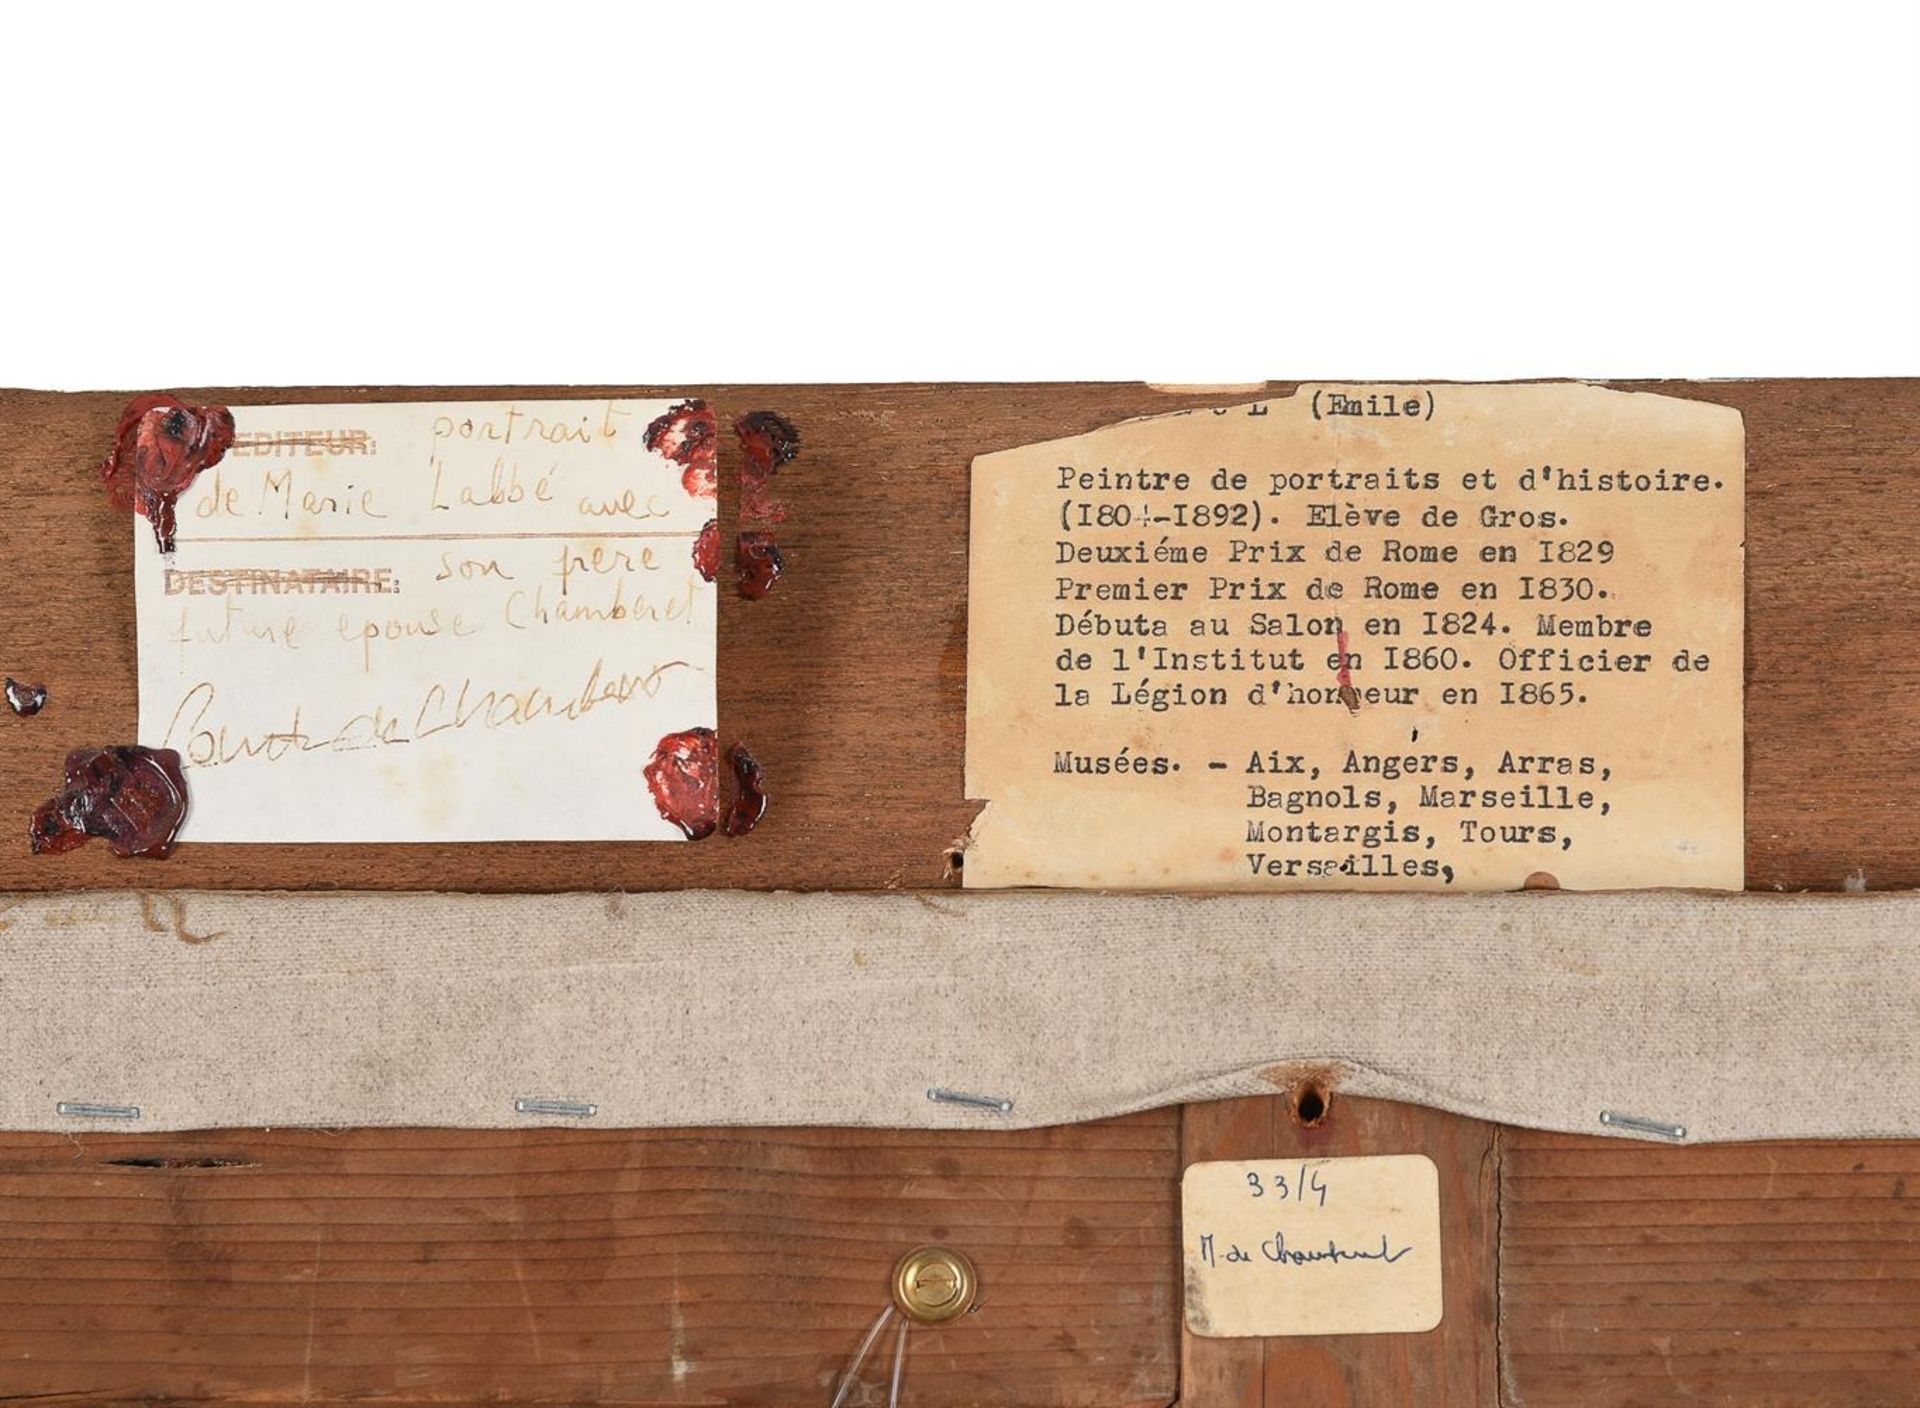 EDITEUR: portrait
de Marie Labbé avec
DESTINATAIRE: son frere
future epouse Chamberet
de Chamberet
(Emile)
Peintre de portraits et d'histoire.
(I804-I892). Elève de Gros.
Deuxiéme Prix de Rome en I829
Premier Prix de Rome en I830.
Débuta au Salon en I824. Membre
de l'Institut en I860. Officier de
la Légion d'honneur en I865.
Musées. - Aix, Angers, Arras,
Bagnols, Marseille,
Montargis, Tours,
Versailles,
33/4
M. de Chamberet